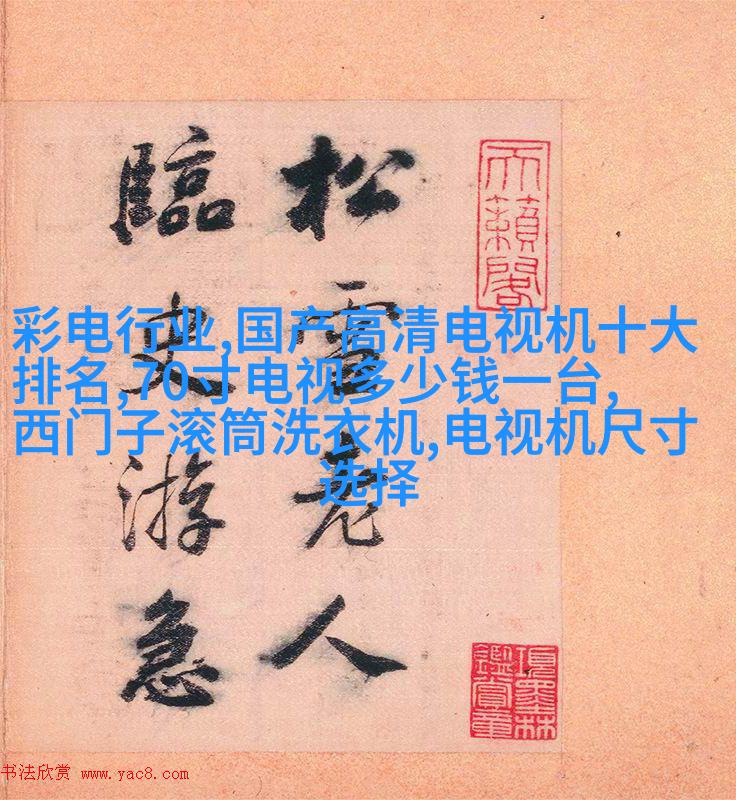 松雪老人
臨史游急
天籟閣
項墨林
鑑賞章
彩电行业,国产高清电视机十大
排名,70寸电视多少钱一台,
西门子滚筒洗衣机,电视机尺寸
选择
书法欣赏 www.yac8.com